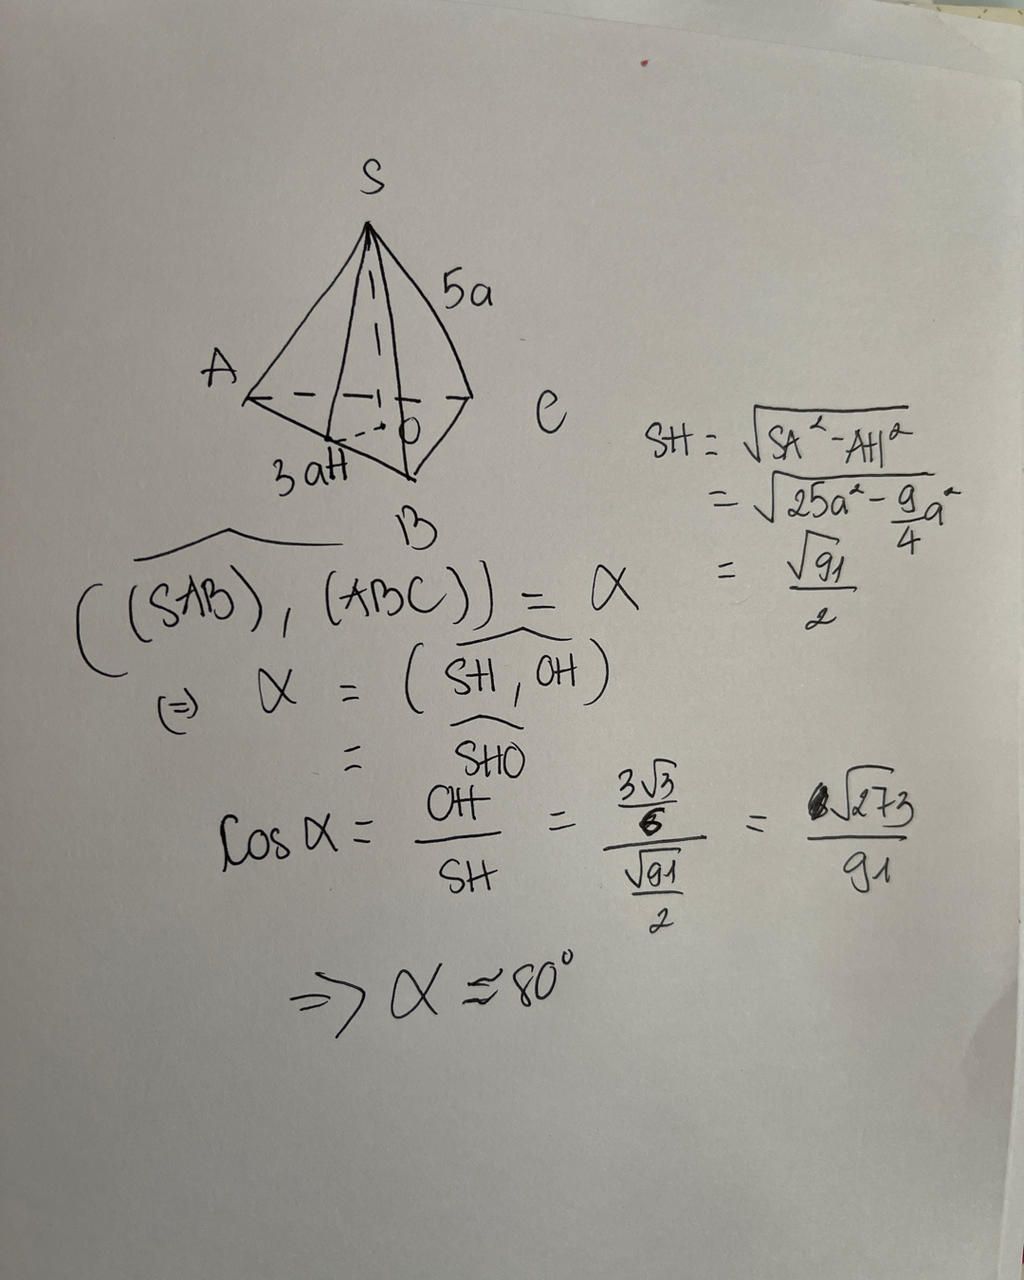 S
5a
A
O
C
3a H
B
SH = √(SA² - AH²)
= √(25a² - 9/4 a²)
= √91/2
((SAB), (ABC)) = α
(=) α = (SH, OH)
= SHO
Cos α = OH/SH = (3√3/6)/(√91/2) = √273/91
=> α ≈ 80°